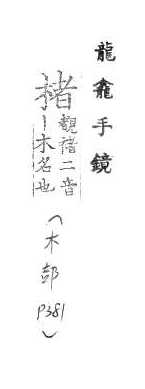 龍龕手鏡
楮覩褚二音丨木名也（木部 P381）